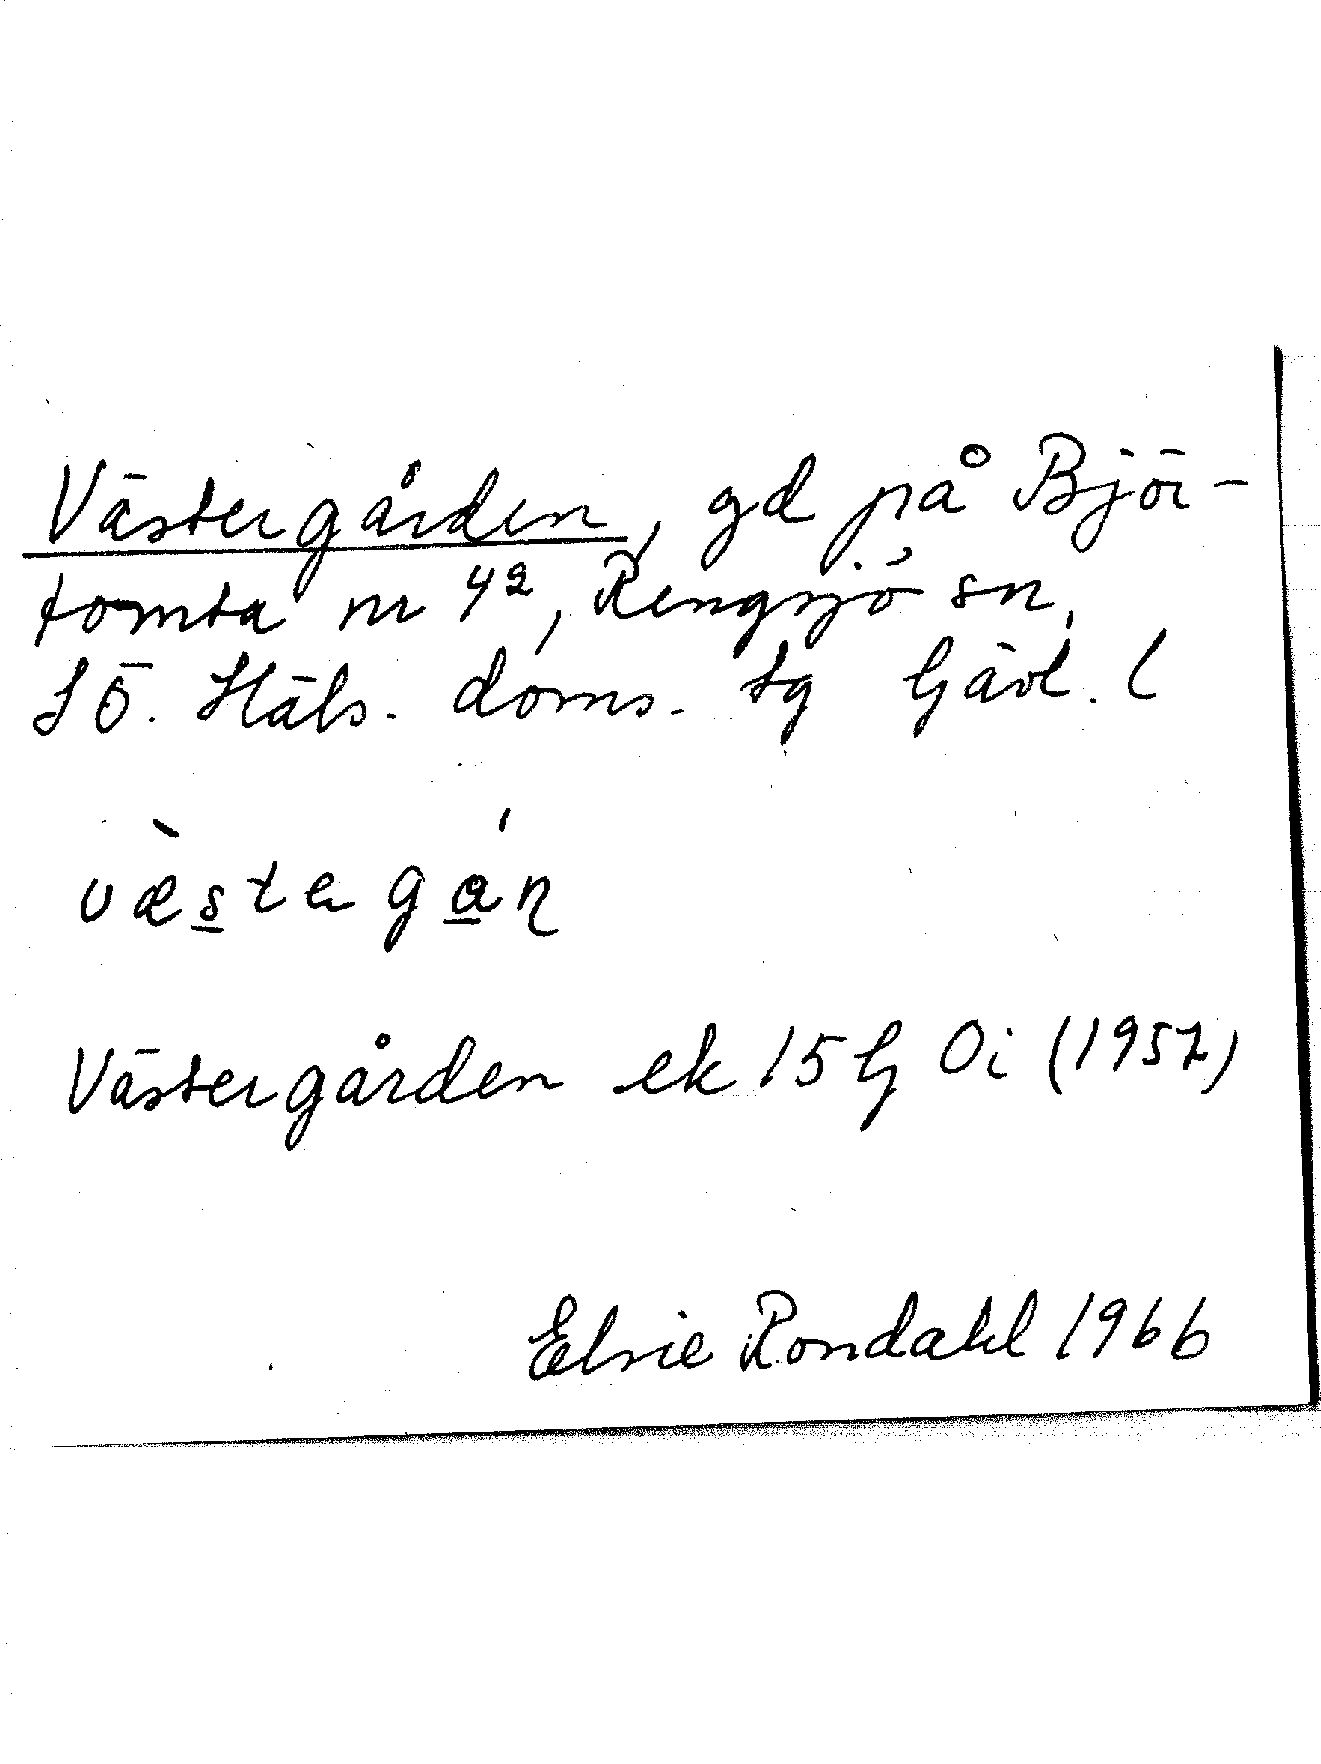 Västergården, gd på Björ-
tomta nr 4², Rengsjö sn,
SÖ. Häls. doms. tg Gävl. l
væ̀stergán
Västergården ek 15 G Oi (1957)
Elsie Rondahl 1966